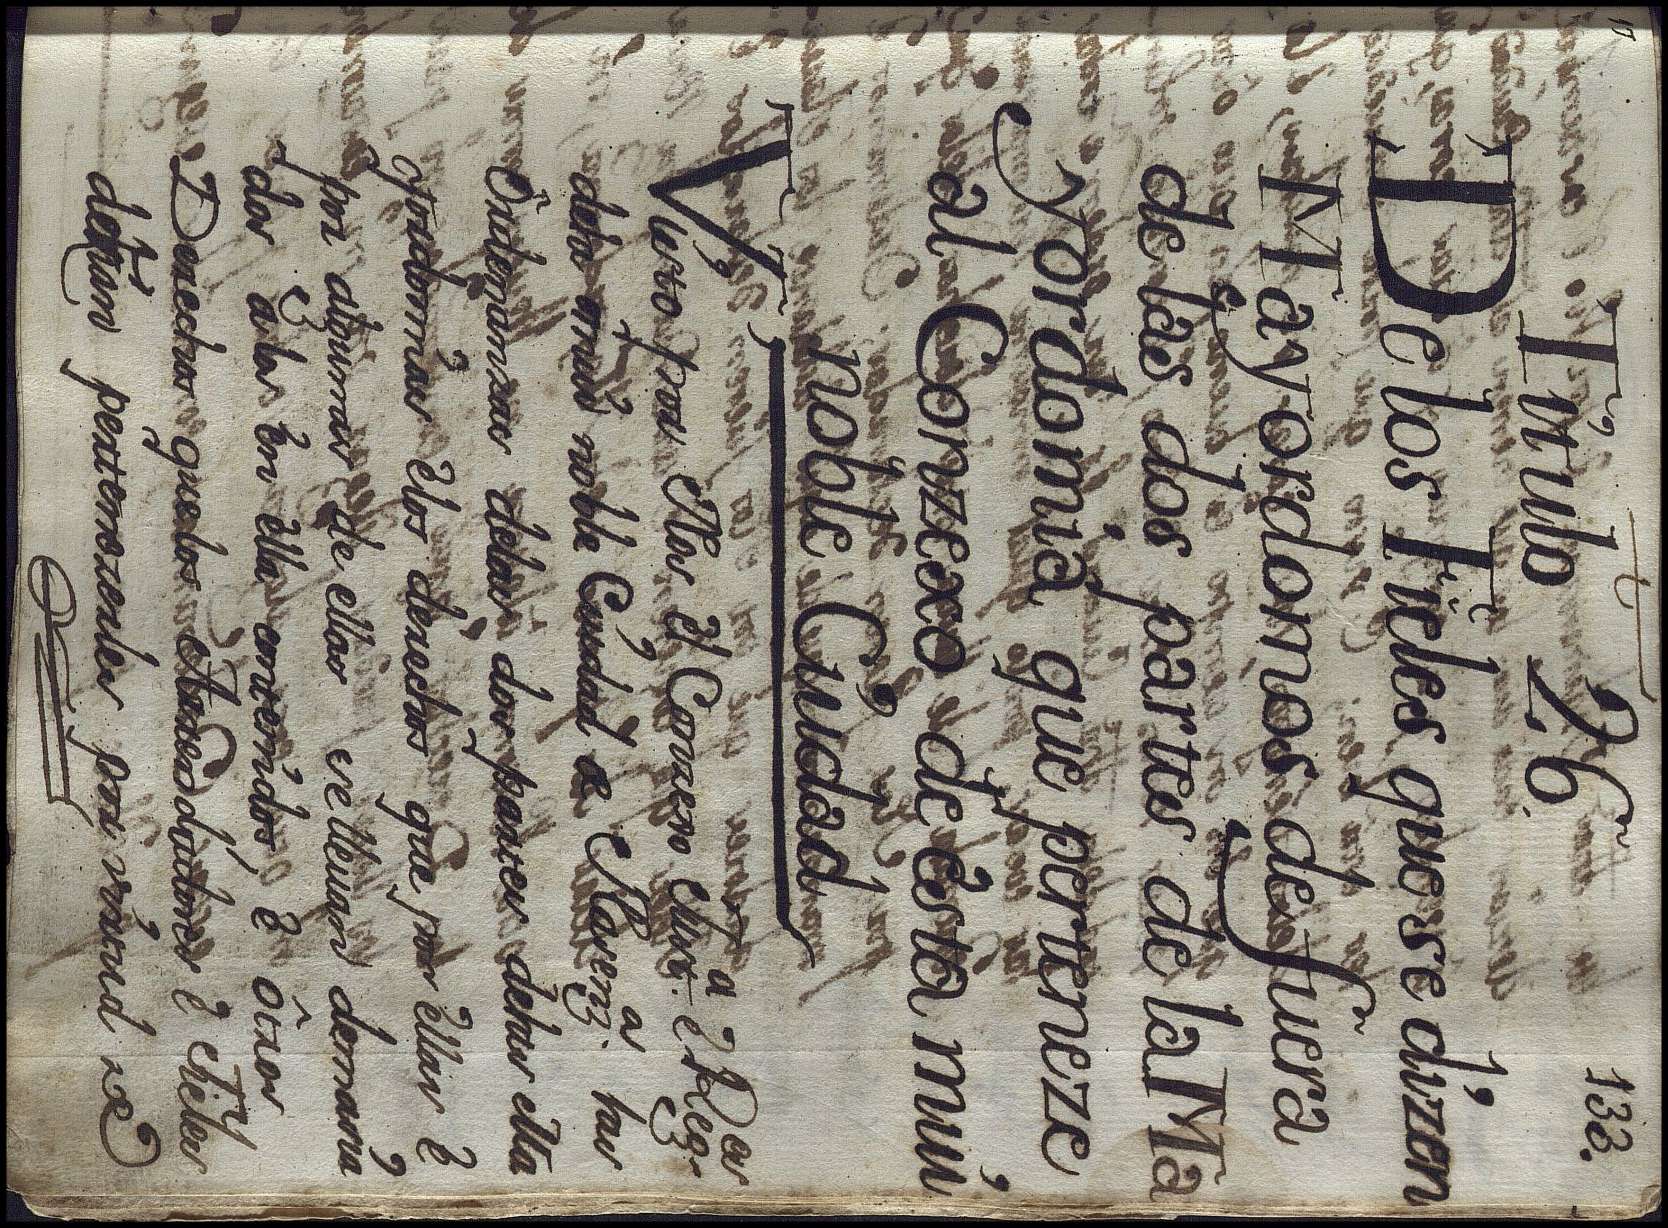 133.
Titulo 26.
De los Fieles que se dizen
Mayordomos de fuera
de las dos partes de la Ma
yordomia que perteneze
al Conzexo de esta mui
noble Ciudad
Visto por Nos el Conzexo Just.ª e Reg.es
desta mui noble Ciudad de las
Ordenanzas de las dos partes de la
Mayordomias e los derechos que por ellas e
por algunas de ellas se lleuan demana
dos a los en ella contenidos e otros
Derechos que los Arrendadores e fieles
dezian pertenezerles por virtud de